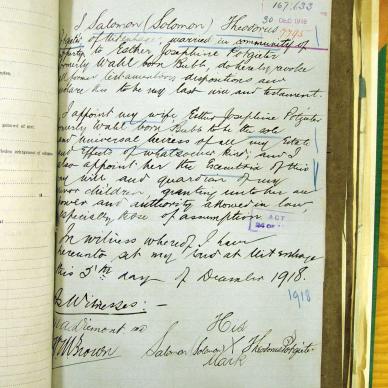 167.633
30 DEC 1918
7795
I Salomon (Solomon) Theodorus
Potgieter of married in community of
property to Esther Josephine Potgieter
formerly Wahl born Bubb do hereby revoke
all former testamentary dispositions and
declare this to be my last will and testament.
I appoint my wife Esther Josephine Potgieter
formerly Wahl born Bubb to be the sole
and universal heiress of all my Estate
and Effects of whatsoever kind, and I
also appoint her the Executrix of this
my will and guardian of my
minor children, granting unto her all
power and authority allowed in law,
especially those of assumption.
In witness whereof I have
hereunto set my hand at
this 5th day of December 1918.
1918
As Witnesses:-
His
Salomon (Solomon) X Theodorus Potgieter
Mark
Brown